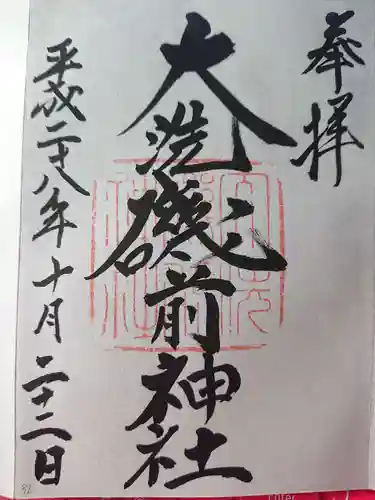 奉拝
大洗磯前神社
平成二十八年十月二十二日